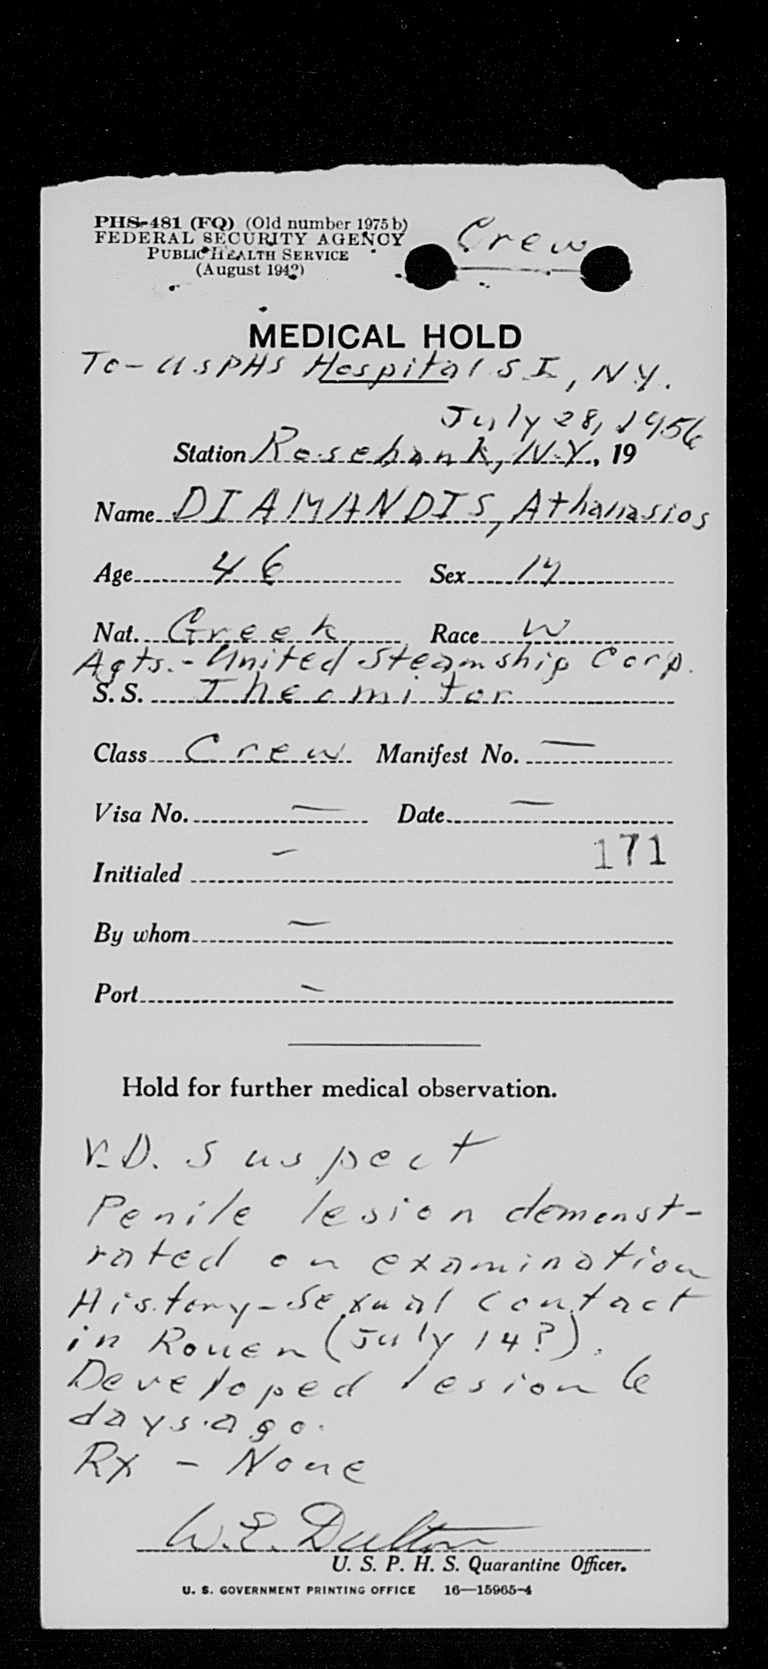 PHS-481 (FQ) (Old number 1975b)
FEDERAL SECURITY AGENCY
PUBLIC HEALTH SERVICE
(August 1942)
Crew
MEDICAL HOLD
To - USPHS Hospital S I, N.Y.
July 28, 1956
Station Rosebank, N.Y., 19
Name DIAMANDIS, Athanasios
Age 46 Sex M
Nat. Greek Race W
Agts. - United Steamship Corp.
S. S. Theomitor
Class Crew Manifest No. —
Visa No. — Date —
171
Initialed —
By whom —
Port —
Hold for further medical observation.
V.D. Suspect
Penile lesion demonst-
rated on examination
History - Sexual contact
in Rouen (July 14?).
Developed lesion 6
days ago.
Rx - None
W. E. Dalton
U. S. P. H. S. Quarantine Officer.
U. S. GOVERNMENT PRINTING OFFICE 16—15965-4